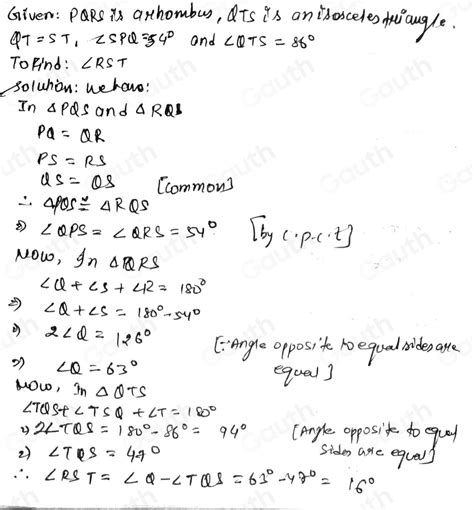 Given: PQRS is a rhombus, QTS is an isosceles triangle.
QT = ST, ∠SPQ = 54° and ∠QTS = 86°
To Find: ∠RST
Solution: we have:
In △PQS and △RQS
PQ = QR
PS = RS
QS = QS [Common]
∴ △PQS ≅ △RQS
⇒ ∠QPS = ∠QRS = 54° [by c.p.c.t]
Now, In △QRS
∠Q + ∠S + ∠R = 180°
⇒ ∠Q + ∠S = 180° - 54°
⇒ 2∠Q = 126°
[∵ Angle opposite to equal sides are equal]
⇒ ∠Q = 63°
Now, In △QTS
∠TQS + ∠TSQ + ∠T = 180°
⇒ 2∠TQS = 180° - 86° = 94° [Angle opposite to equal sides are equal]
⇒ ∠TQS = 47°
∴ ∠RST = ∠Q - ∠TQS = 63° - 47° = 16°
Gauth